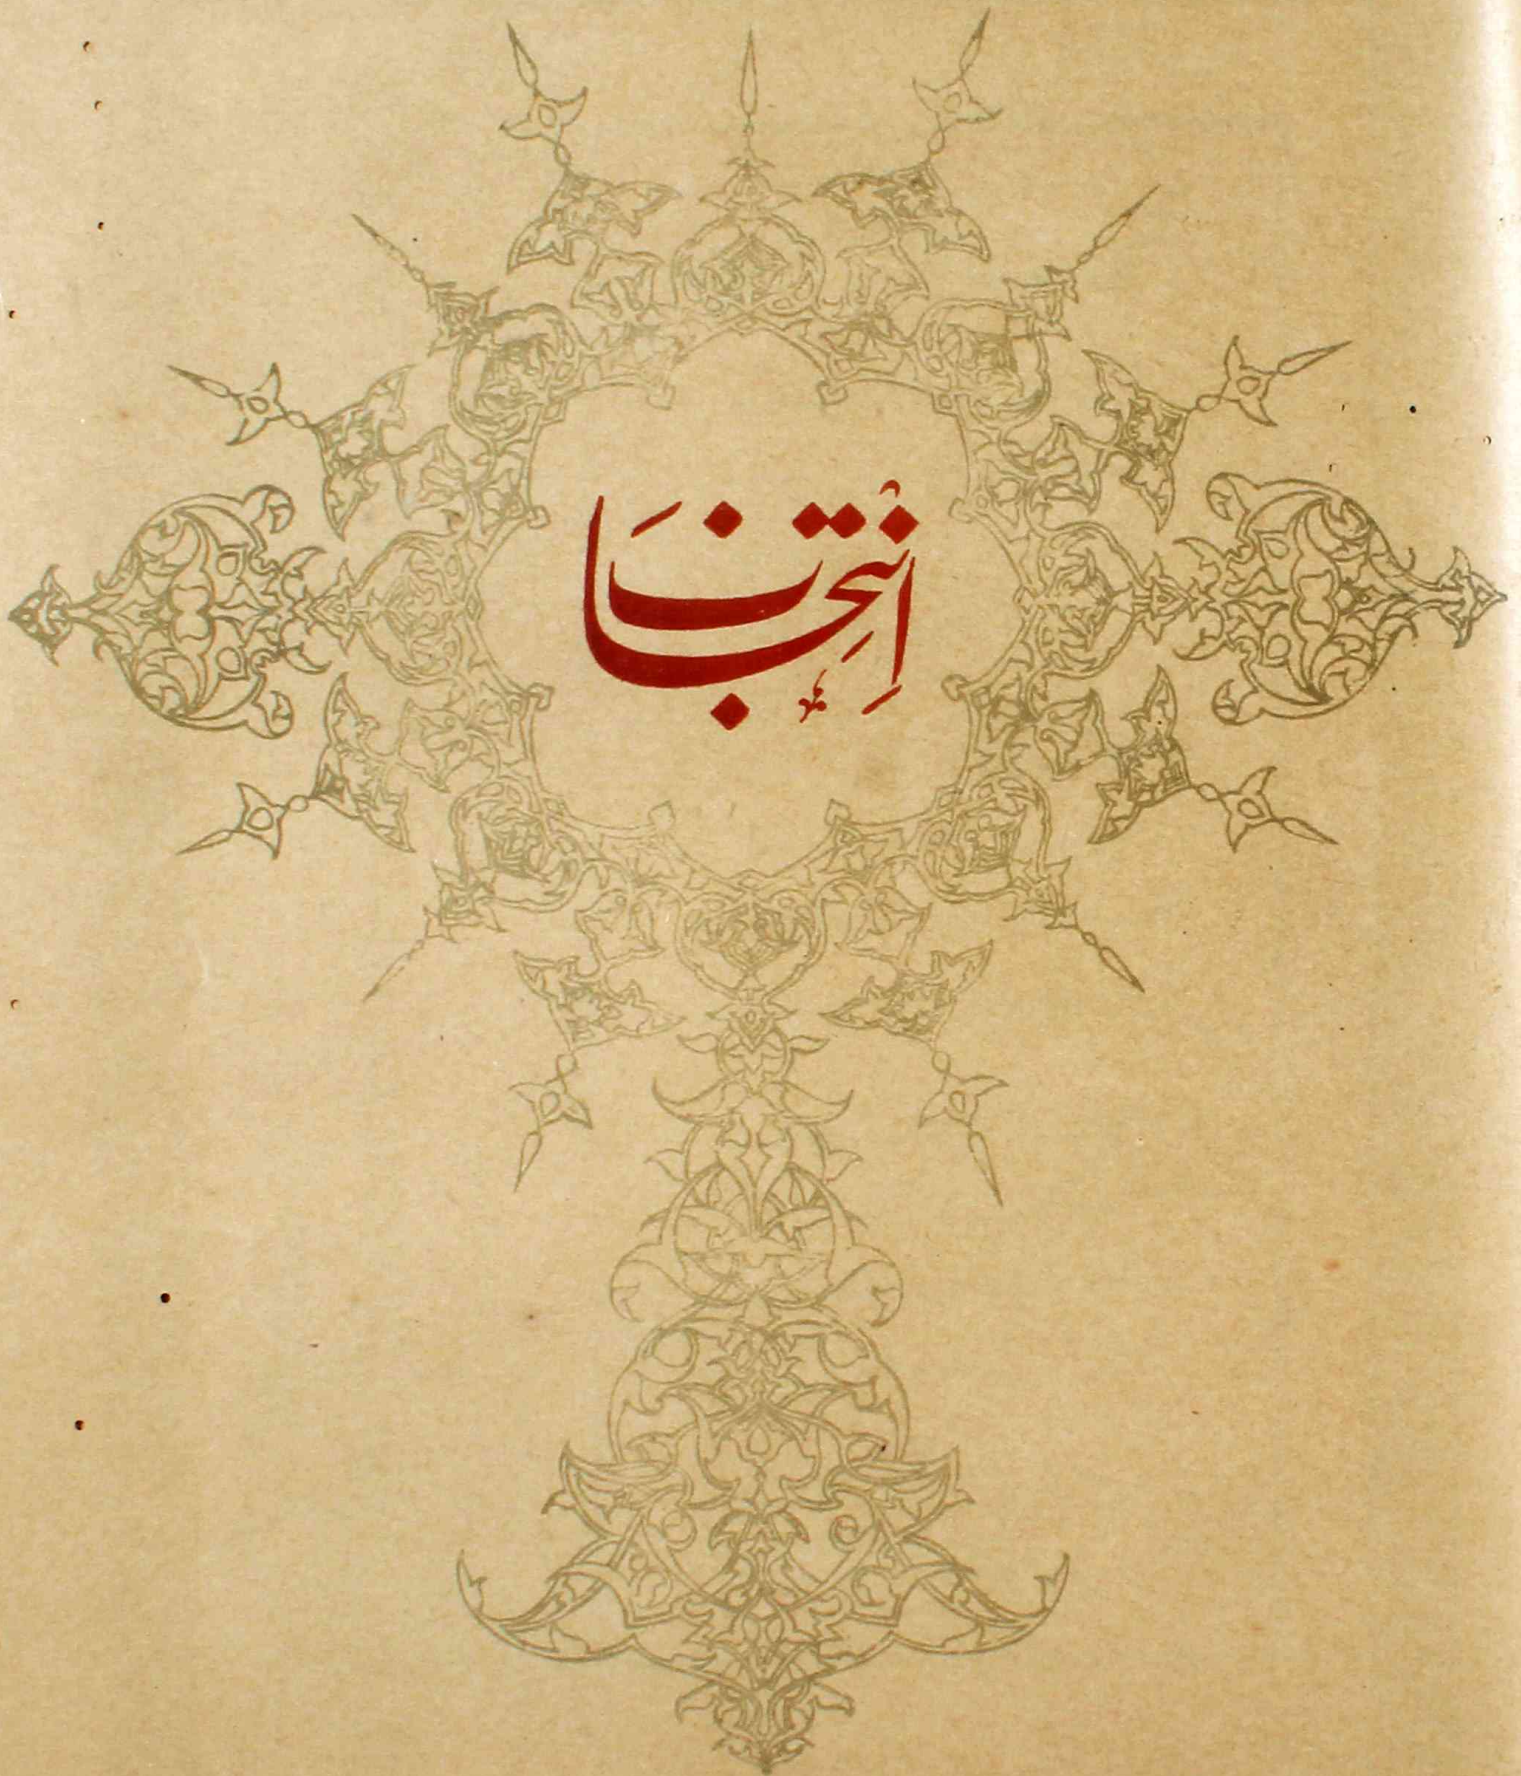 اِنتخاب